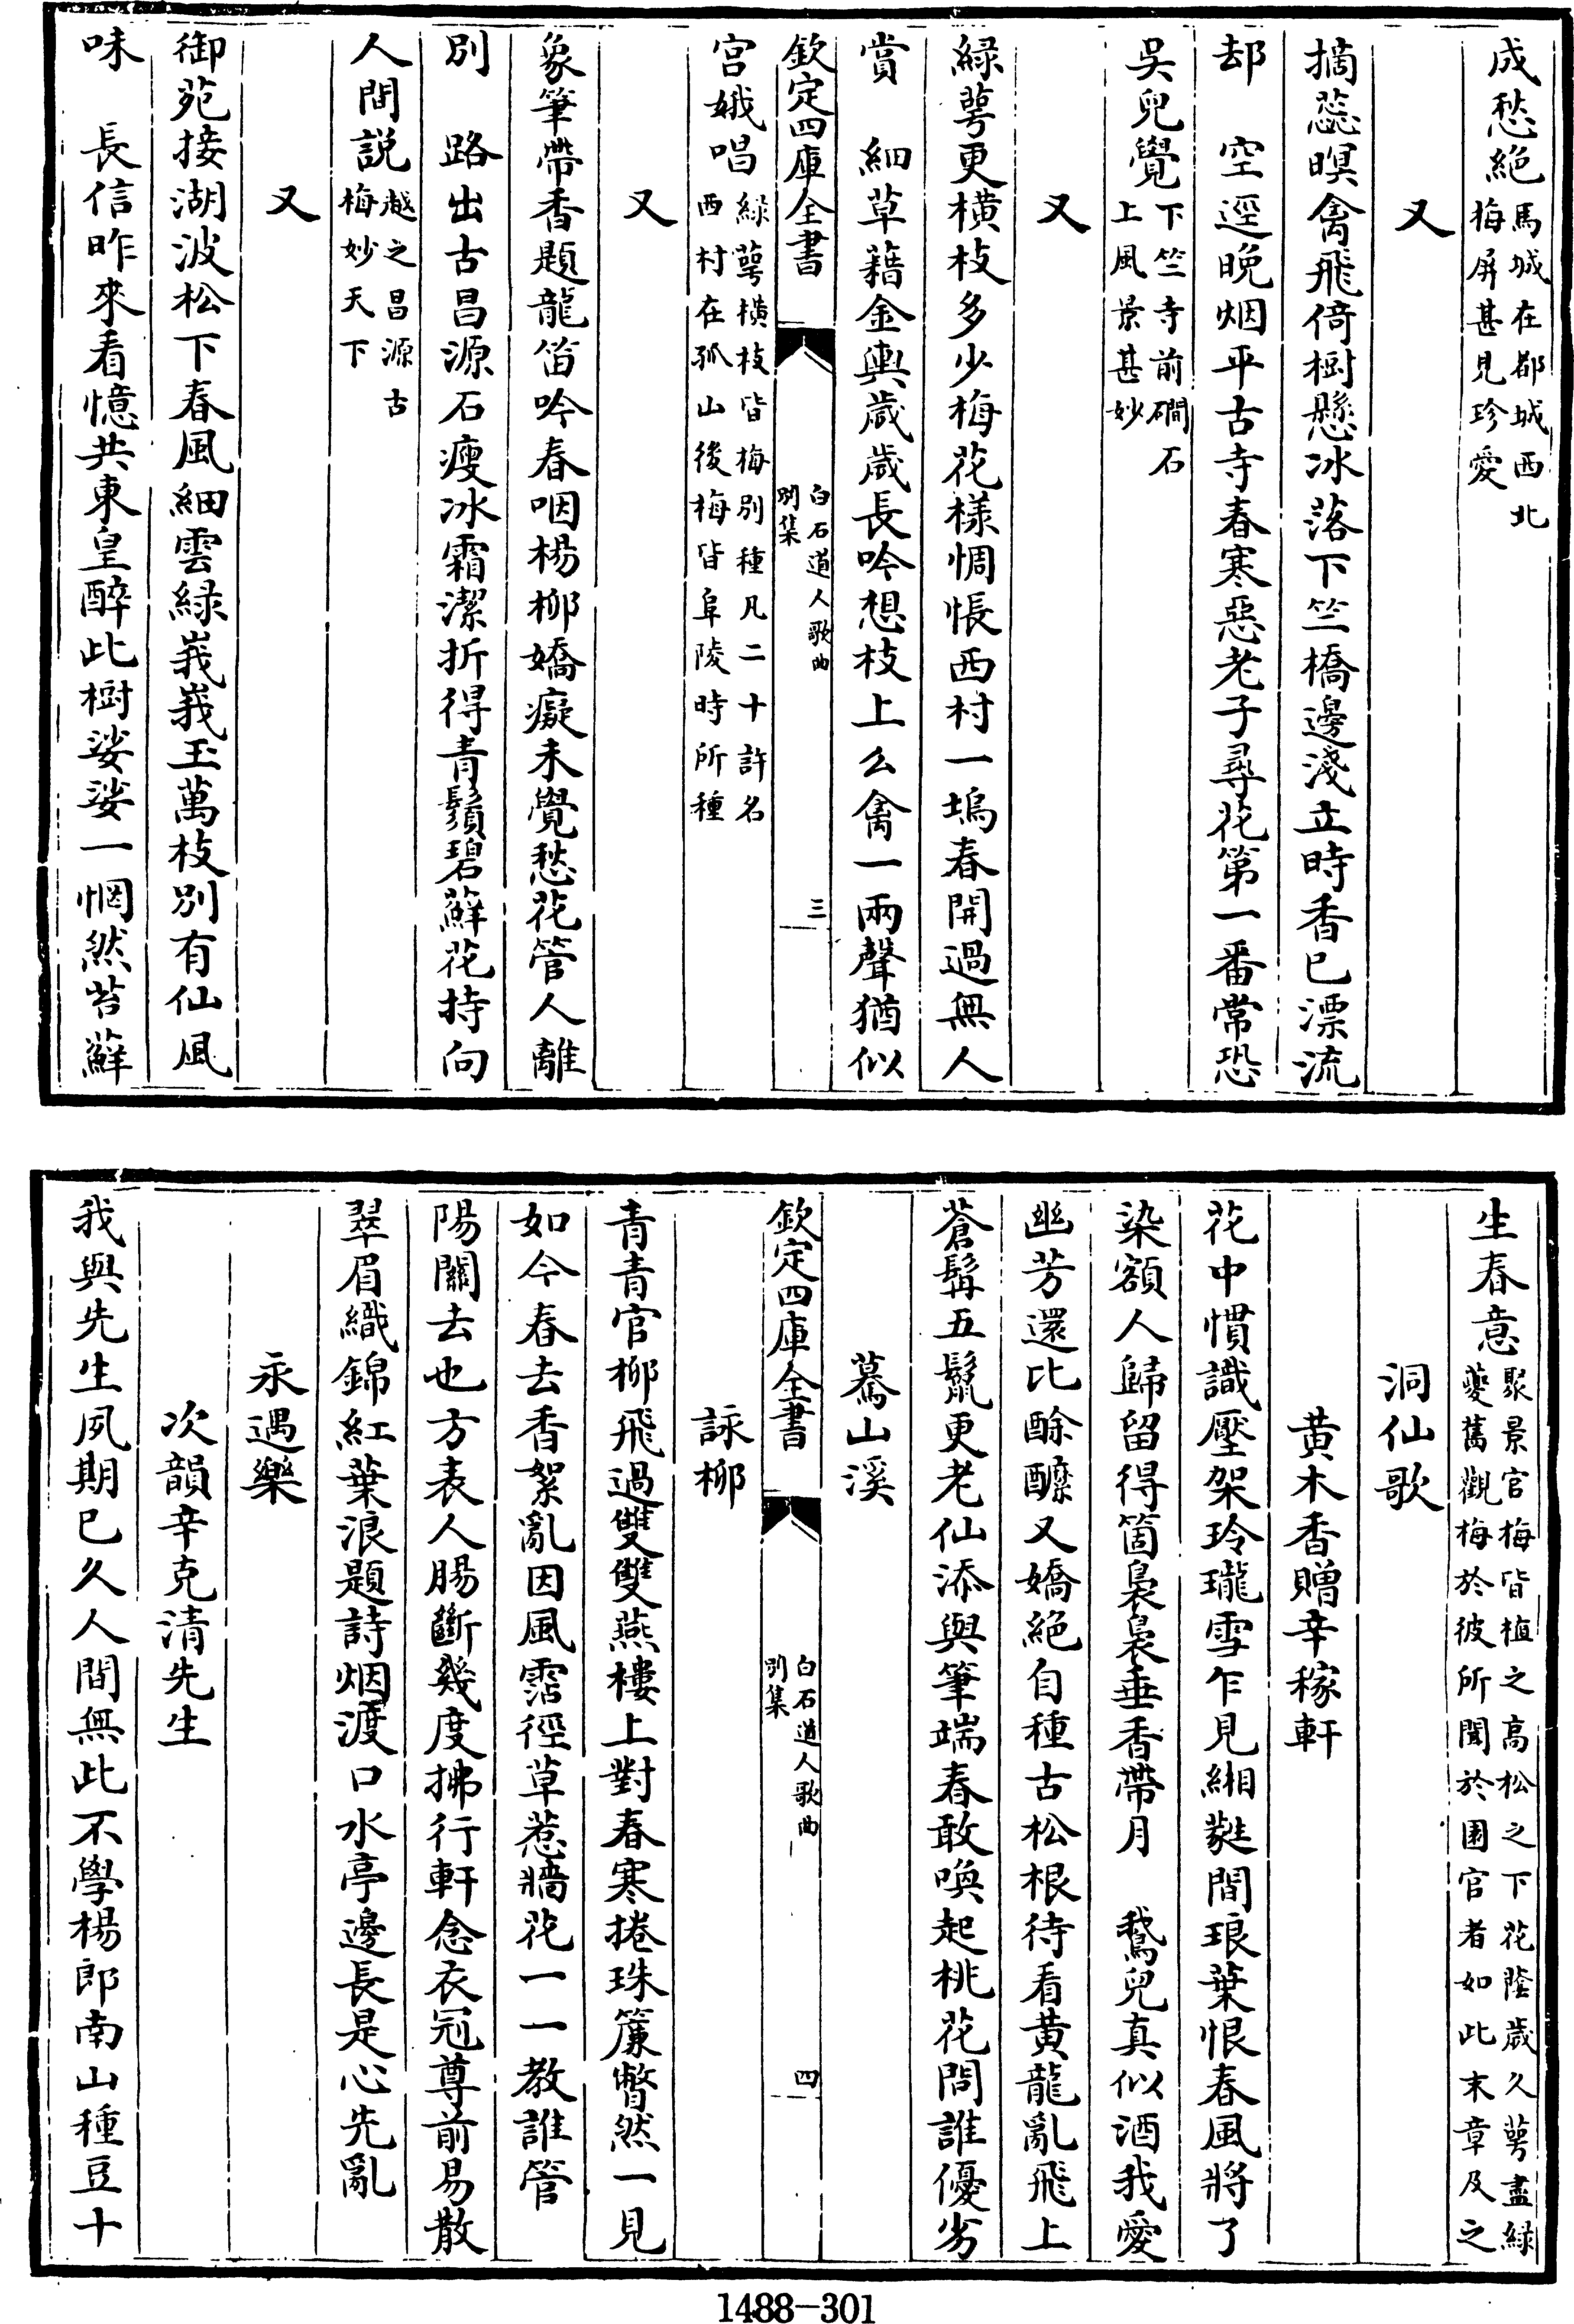 成愁絶馬城在都城西北
梅屏甚見珍愛
又
摘蕊暝禽飛倚樹懸冰落下竺橋邊淺立時香已漂流
却　空逕晚烟平古寺春寒惡老子尋花第一番常恐
吳兒覺下竺寺前磵石
上風景甚妙
又
緑萼更橫枝多少梅花様惆悵西村一塢春開過無人
賞　細草藉金輿歲歲長吟想枝上么禽一兩聲猶似
欽定四庫全書
白石道人歌曲
別集
三
宮娥唱緑萼橫枝皆梅別種凡二十許名
西村在孤山後梅皆阜陵時所種
又
象筆帶香題龍笛吟春咽楊柳嬌癡未覺愁花管人離
別　路出古昌源石瘦冰霜潔折得青鬚碧蘚花持向
人間説越之昌源古
梅妙天下
又
御苑接湖波松下春風細雲緑峩峩玉萬枝別有仙風
味　長信昨來看憶共東皇醉此樹娑娑一惘然苔蘚
生春意聚景官梅皆植之高松之下花䕃歲久萼盡緑
夔舊觀梅於彼所聞於園官者如此末章及之
洞仙歌
黄木香贈辛稼軒
花中慣識壓架玲瓏雪乍見緗蕤間琅葉恨春風將了
染額人歸留得箇裊裊垂香帶月　鵝兒真似酒我愛
幽芳還比酴醾又嬌絶自種古松根待看黄龍亂飛上
蒼髯五鬛更老仙添與筆端春敢喚起桃花問誰優劣
驀山溪
欽定四庫全書
白石道人歌曲
別集
四
詠柳
青青官柳飛過雙雙燕樓上對春寒捲珠簾瞥然一見
如今春去香絮亂因風霑徑草惹牆花一一教誰管
陽關去也方表人腸斷幾度拂行軒念衣冠尊前易散
翠眉織錦紅葉浪題詩烟渡口水亭邊長是心先亂
永遇樂
次韻辛克清先生
我與先生夙期已久人間無此不學楊郎南山種豆十
1488-301